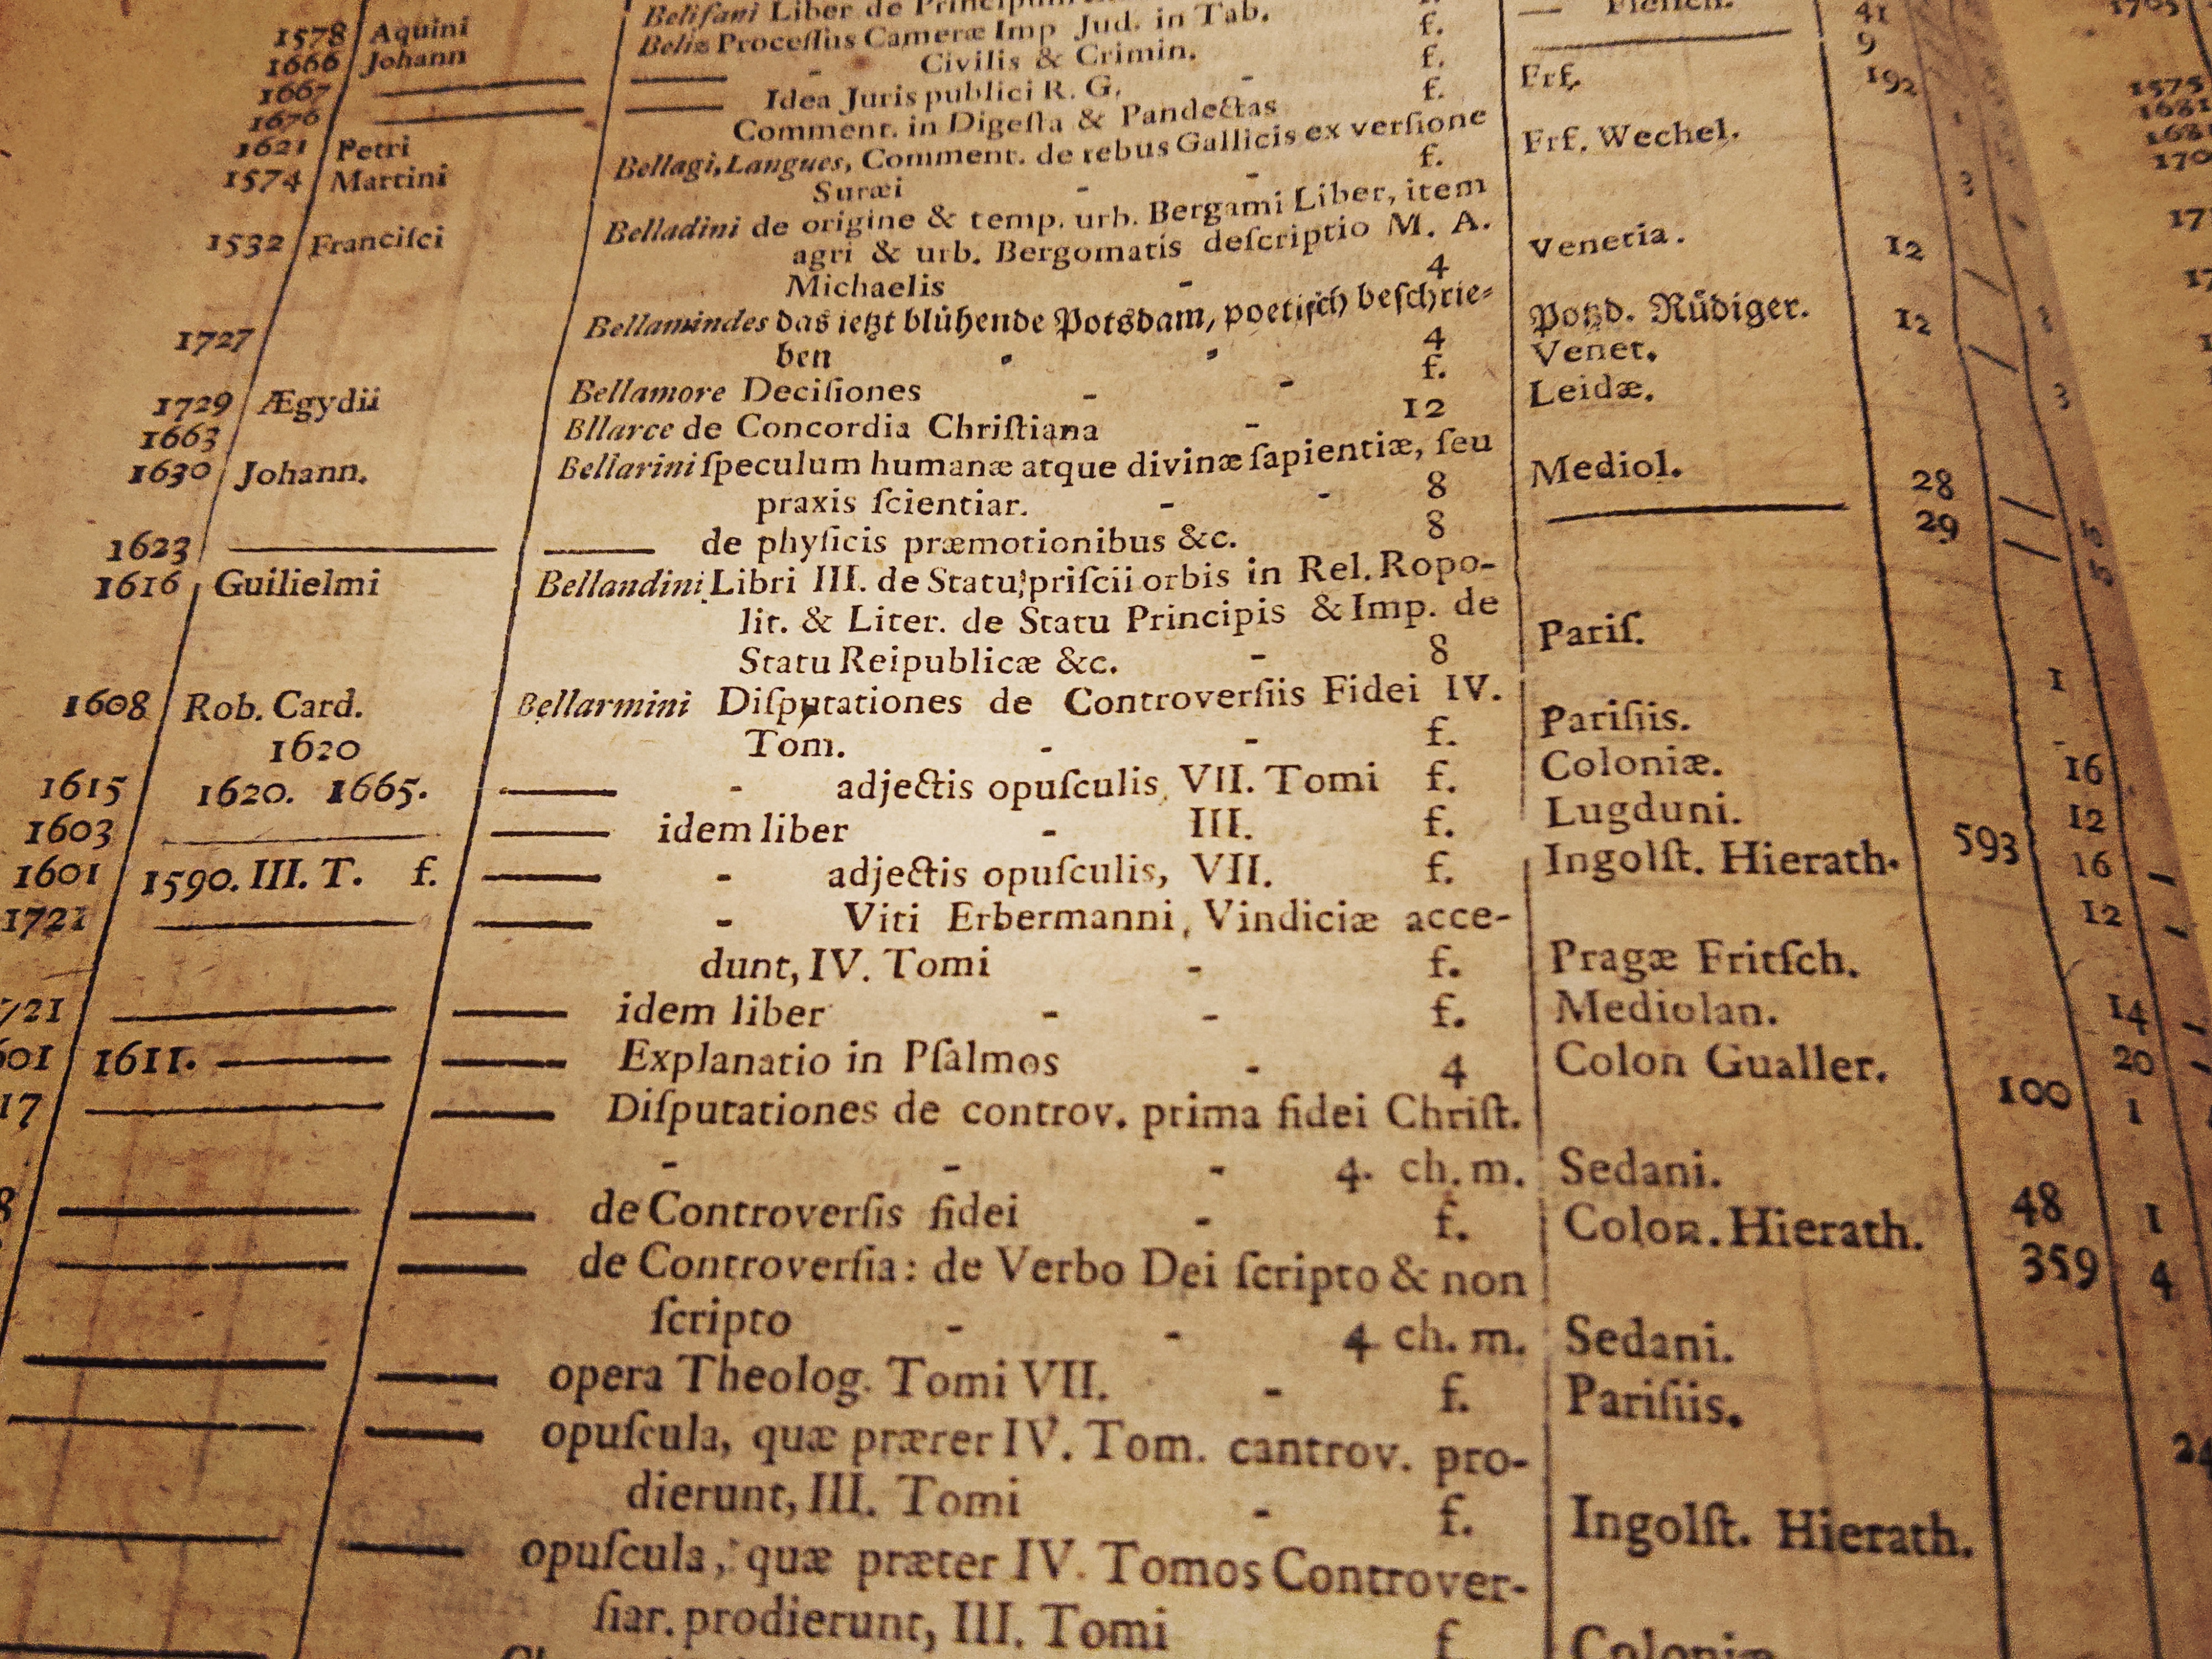 1578 Aquini Belisani Liber de
1666 Johann Beliz Processus Cameræ Imp Jud. in Tab. f. 41
Civilis & Crimin. f. 9
1667 Idea Juris publici R. G. f. Frf. 192
1676 Comment. in Digesta & Pandectas f.
1621 Petri Bellagi, Langues, Comment. de rebus Gallicis ex versione
1574 Martini Suræi f. Frf. Wechel. 3
1532 Francisci Belladini de origine & temp. urb. Bergami Liber, item
agri & urb. Bergomatis descriptio M. A.
Michaelis 4 Venetia. 12
1727 Bellamindes das ietzt blühende Potsdam, poetisch beschrie-
ben 4 Potzd. Rüdiger. 12
1729 Ægydii Bellamore Decisiones f. Venet. 3
1663 Bllarce de Concordia Christiana 12 Leidæ.
1630 Johann. Bellarini speculum humanæ atque divinæ sapientiæ, seu
praxis scientiar. 8 Mediol. 28
1623 de physicis præmotionibus &c. 8 29
1616 Guilielmi Bellandini Libri III. de Statu priscii orbis in Rel. Ropo-
lit. & Liter. de Statu Principis & Imp. de
Statu Reipublicæ &c. 8 Paris. 1
1608 Rob. Card. Bellarmini Disputationes de Controversiis Fidei IV.
1620 Tom. f. Parisiis. 16
1615 1620. 1665. adjectis opusculis, VII. Tomi f. Coloniæ. 12
1603 idem liber III. f. Lugduni. 16
1601 1590. III. T. f. adjectis opusculis, VII. f. Ingolst. Hierath. 593 12
1721 Viti Erbermanni, Vindiciæ acce-
dunt, IV. Tomi f. Pragæ Fritsch. 14
721 idem liber f. Mediolan. 20
601 1611. Explanatio in Psalmos 4 Colon Gualler. 100 1
17 Disputationes de controv. prima fidei Christ.
4. ch. m. Sedani. 48 1
8 de Controversis fidei f. Colon. Hierath. 359 4
de Controversia: de Verbo Dei scripto & non
scripto 4 ch. m. Sedani.
opera Theolog. Tomi VII. f. Parisiis. 24
opuscula, quæ prærer IV. Tom. cantrov. pro-
dierunt, III. Tomi f. Ingolst. Hierath.
opuscula, quæ præter IV. Tomos Controver-
siar. prodierunt, III. Tomi f Coloniæ